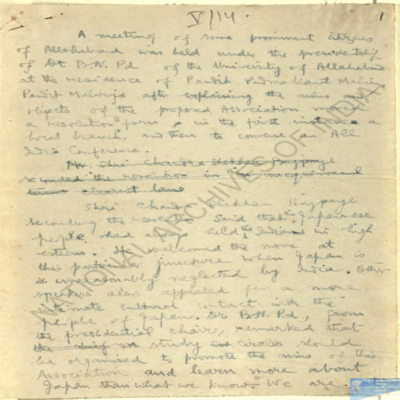 V/14. 1
A meeting of some prominent citizens
of Allahabad was held under the presidentship
of Dr B.N. Pd of the University of Allahabad
at the residence of Pandit Padma Kant Malviya
Pandit Malviya after explaining the aims
objects of the proposed Association
a resolution to form in the first instance a
local branch and then to convene an All
India Conference.
Mr. Shri Chandra
seconded the resolution in unequivocal
Shri Chandra Shekhar
seconding the said that the Japanese
people had always held the Indians in high
esteem. He welcomed the move at
this particular juncture when Japan is
neglected by India. Other
speakers also appealed for a more
intimate cultural contact with the
people of Japan. Dr B.N. Pd, from
the presidential chair, remarked that
study circles should
be organised to promote the aims of this
Association and learn more about
Japan than what we know. We are
NATIONAL ARCHIVES OF INDIA